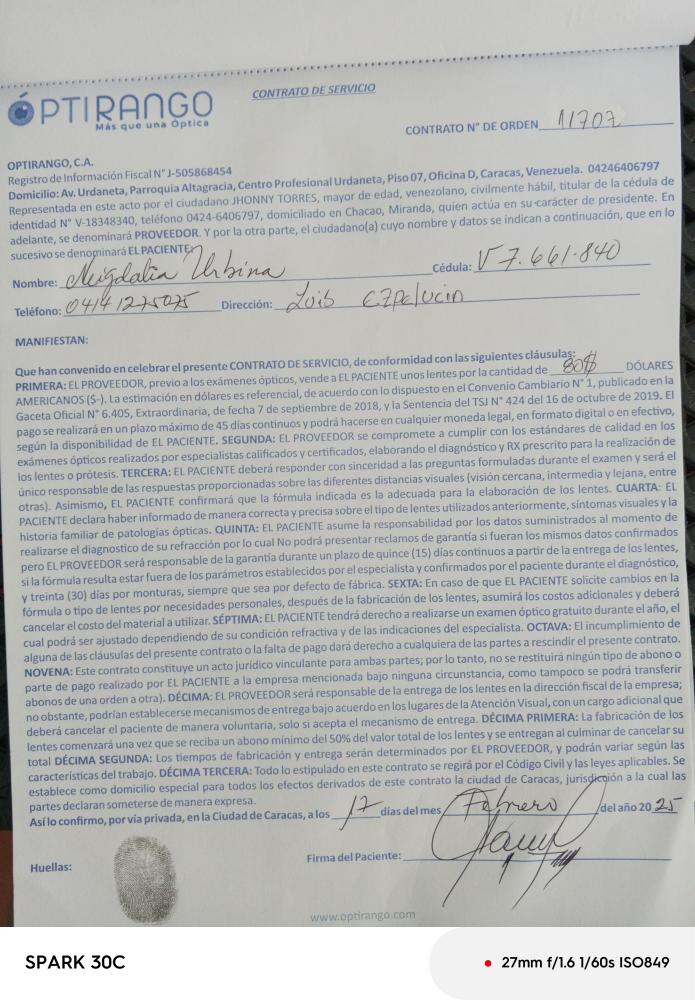 CONTRATO DE SERVICIO
ÓPTIRANGO
Más que una Óptica
CONTRATO N° DE ORDEN 11707
OPTIRANGO, C.A.
Registro de Información Fiscal N° J-505868454
Domicilio: Av. Urdaneta, Parroquia Altagracia, Centro Profesional Urdaneta, Piso 07, Oficina D, Caracas, Venezuela. 04246406797
Representada en este acto por el ciudadano JHONNY TORRES, mayor de edad, venezolano, civilmente hábil, titular de la cédula de
identidad N° V-18348340, teléfono 0424-6406797, domiciliado en Chacao, Miranda, quien actúa en su carácter de presidente. En
adelante, se denominará PROVEEDOR. Y por la otra parte, el ciudadano(a) cuyo nombre y datos se indican a continuación, que en lo
sucesivo se denominará EL PACIENTE:
Nombre: Migdalia Urbina Cédula: V 7.661.840
Teléfono: 04141275075 Dirección: Luis
MANIFIESTAN:
Que han convenido en celebrar el presente CONTRATO DE SERVICIO, de conformidad con las siguientes cláusulas:
PRIMERA: EL PROVEEDOR, previo a los exámenes ópticos, vende a EL PACIENTE unos lentes por la cantidad de 80$ DÓLARES
AMERICANOS ($-). La estimación en dólares es referencial, de acuerdo con lo dispuesto en el Convenio Cambiario N° 1, publicado en la
Gaceta Oficial N° 6.405, Extraordinaria, de fecha 7 de septiembre de 2018, y la Sentencia del TSJ N° 424 del 16 de octubre de 2019. El
pago se realizará en un plazo máximo de 45 días continuos y podrá hacerse en cualquier moneda legal, en formato digital o en efectivo,
según la disponibilidad de EL PACIENTE. SEGUNDA: EL PROVEEDOR se compromete a cumplir con los estándares de calidad en los
exámenes ópticos realizados por especialistas calificados y certificados, elaborando el diagnóstico y RX prescrito para la realización de
los lentes o prótesis. TERCERA: EL PACIENTE deberá responder con sinceridad a las preguntas formuladas durante el examen y será el
único responsable de las respuestas proporcionadas sobre las diferentes distancias visuales (visión cercana, intermedia y lejana, entre
otras). Asimismo, EL PACIENTE confirmará que la fórmula indicada es la adecuada para la elaboración de los lentes. CUARTA: EL
PACIENTE declara haber informado de manera correcta y precisa sobre el tipo de lentes utilizados anteriormente, síntomas visuales y la
historia familiar de patologías ópticas. QUINTA: EL PACIENTE asume la responsabilidad por los datos suministrados al momento de
realizarse el diagnostico de su refracción por lo cual No podrá presentar reclamos de garantía si fueran los mismos datos confirmados
pero EL PROVEEDOR será responsable de la garantía durante un plazo de quince (15) días continuos a partir de la entrega de los lentes,
si la fórmula resulta estar fuera de los parámetros establecidos por el especialista y confirmados por el paciente durante el diagnóstico,
y treinta (30) días por monturas, siempre que sea por defecto de fábrica. SEXTA: En caso de que EL PACIENTE solicite cambios en la
fórmula o tipo de lentes por necesidades personales, después de la fabricación de los lentes, asumirá los costos adicionales y deberá
cancelar el costo del material a utilizar. SÉPTIMA: EL PACIENTE tendrá derecho a realizarse un examen óptico gratuito durante el año, el
cual podrá ser ajustado dependiendo de su condición refractiva y de las indicaciones del especialista. OCTAVA: El incumplimiento de
alguna de las cláusulas del presente contrato o la falta de pago dará derecho a cualquiera de las partes a rescindir el presente contrato.
NOVENA: Este contrato constituye un acto jurídico vinculante para ambas partes; por lo tanto, no se restituirá ningún tipo de abono o
parte de pago realizado por EL PACIENTE a la empresa mencionada bajo ninguna circunstancia, como tampoco se podrá transferir
abonos de una orden a otra). DÉCIMA: EL PROVEEDOR será responsable de la entrega de los lentes en la dirección fiscal de la empresa;
no obstante, podrían establecerse mecanismos de entrega bajo acuerdo en los lugares de la Atención Visual, con un cargo adicional que
deberá cancelar el paciente de manera voluntaria, solo si acepta el mecanismo de entrega. DÉCIMA PRIMERA: La fabricación de los
lentes comenzará una vez que se reciba un abono mínimo del 50% del valor total de los lentes y se entregan al culminar de cancelar su
total DÉCIMA SEGUNDA: Los tiempos de fabricación y entrega serán determinados por EL PROVEEDOR, y podrán variar según las
características del trabajo. DÉCIMA TERCERA: Todo lo estipulado en este contrato se regirá por el Código Civil y las leyes aplicables. Se
establece como domicilio especial para todos los efectos derivados de este contrato la ciudad de Caracas, jurisdicción a la cual las
partes declaran someterse de manera expresa.
Así lo confirmo, por vía privada, en la Ciudad de Caracas, a los 17 días del mes Febrero del año 20 25
Huellas:
Firma del Paciente:
www.optirango.com
SPARK 30C
27mm f/1.6 1/60s ISO849